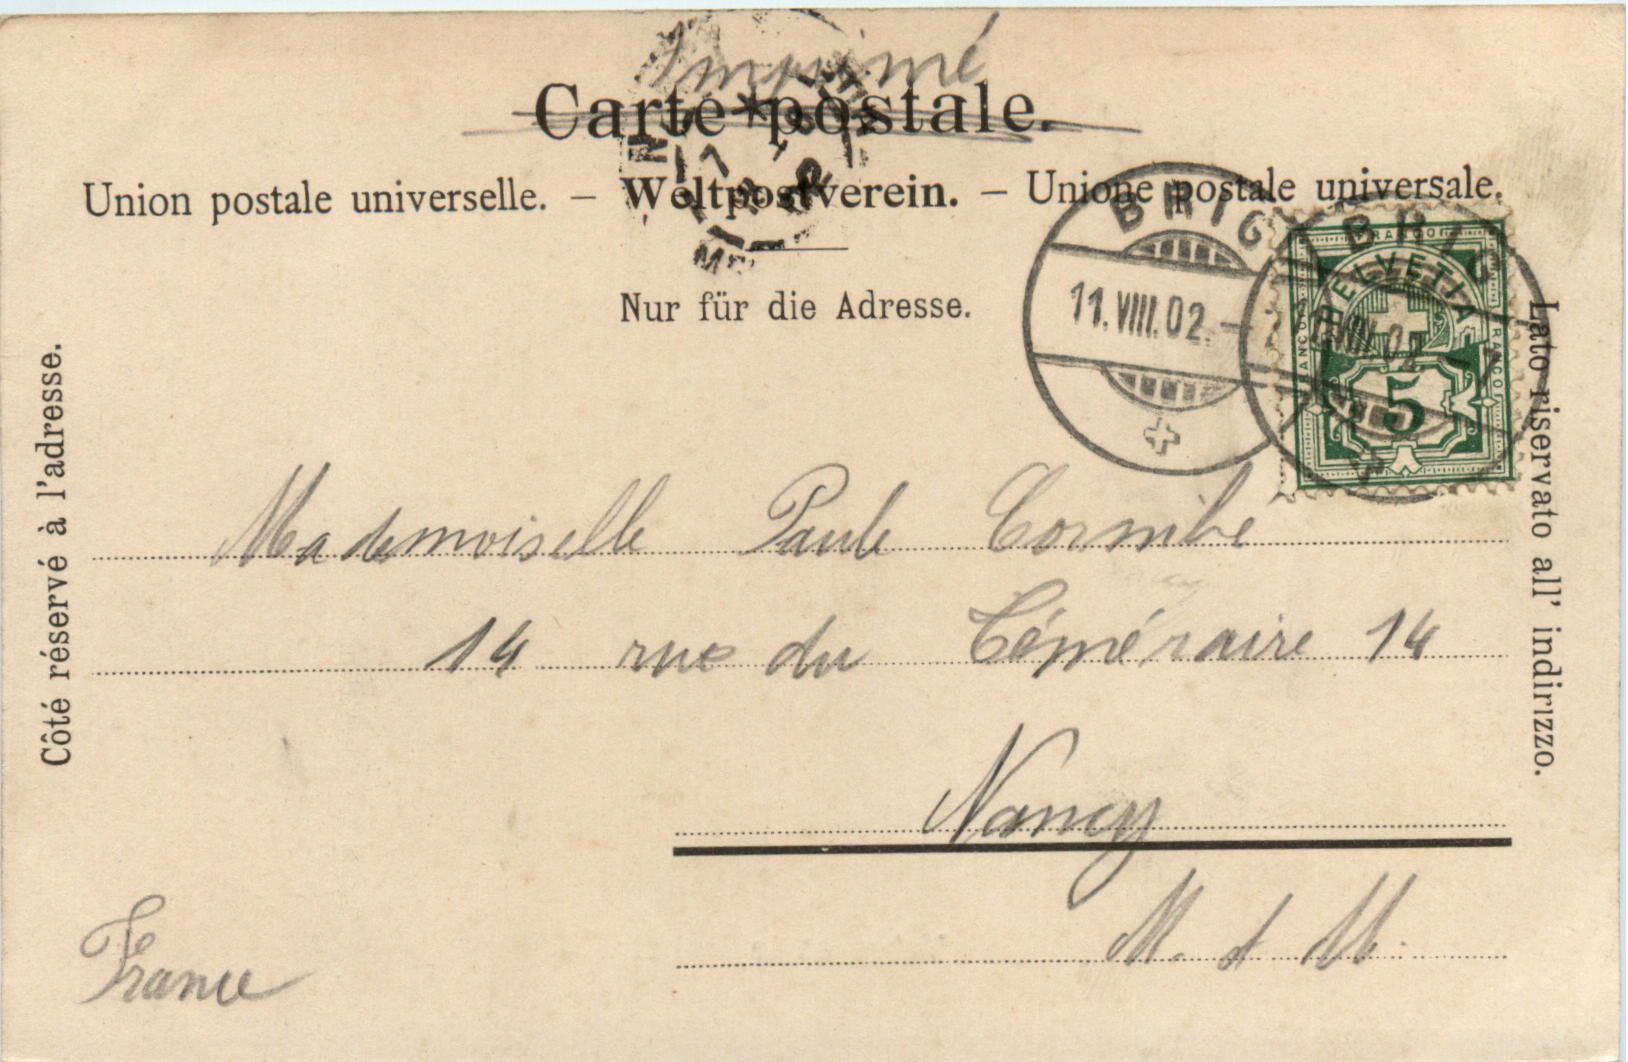 Imprimé
Carte postale.
Union postale universelle. – Weltpostverein. – Unione postale universale.
Nur für die Adresse.
Côté réservé à l'adresse.
Lato riservato all' indirizzo.
BRIG
11.VIII.02.
BRIG
VIII.02
FRANCO
HELVETIA
FRANCO
FRANCO
5
Mademoiselle Paule
14 rue du Téméraire 14
Nancy
M. et M.
France